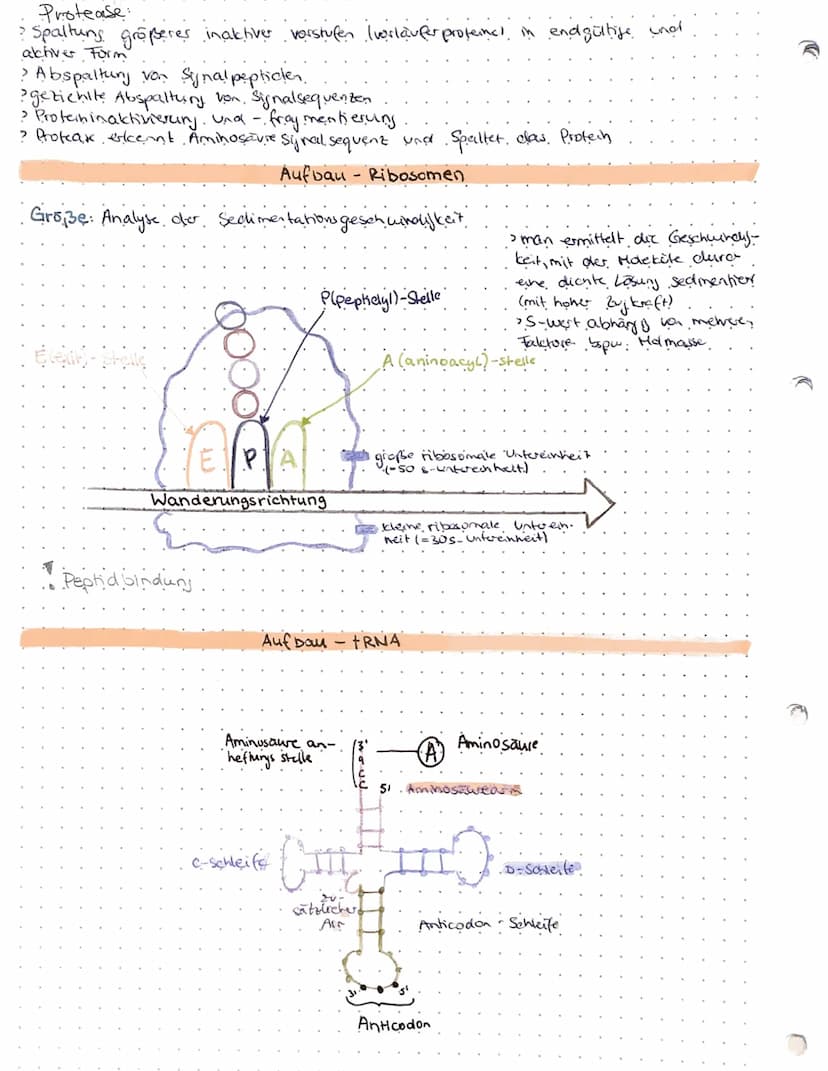 Protease:
> Spaltung größeres inaktiver vorstufen (vorläuferproteine) in endgültige und
aktiver Form
> Abspaltung von Signalpeptiden
> gezielte Abspaltung von Signalsequenzen
> Proteininaktivierung und -fragmentierung
> Protease erkennt Aminosäure Signalsequenz und Spaltet das Protein
Aufbau - Ribosomen
Größe: Analyse der Sedimentationsgeschwindigkeit
> man ermittelt die Geschwindig-
keit, mit der Moleküle durch
eine dichte Lösung sedimentiert
(mit hoher Zugkraft)
> S-Wert abhängig von mehrern
Faktore bspw. Molmasse
P(peptidyl)-Stelle
E(exit)-Stelle
A(aminoacyl)-Stelle
E P A
große ribosomale Untereinheit
(=50 s-Untereinheit)
Wanderungsrichtung
kleine ribosomale Unterein-
heit (=30s-Untereinheit)
! Peptidbindung
Aufbau - tRNA
Aminosäure an-
heftungs stelle
3'
A
C
C
A
Aminosäure
5'
Aminosäurearm
C-Schleife
D-Schleife
zu-
sätzlicher
Arm
Anticodon-Schleife
3' 5'
Anticodon